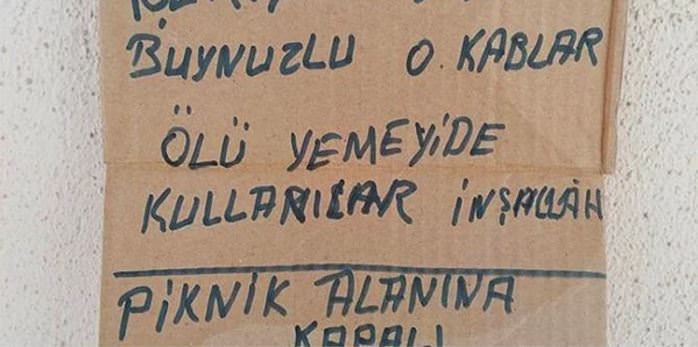 BUYNUZLU O. KABLAR
ÖLÜ YEMEYİDE
KULLANILAR İNŞALLAH
PİKNİK ALANINA
KAPALI